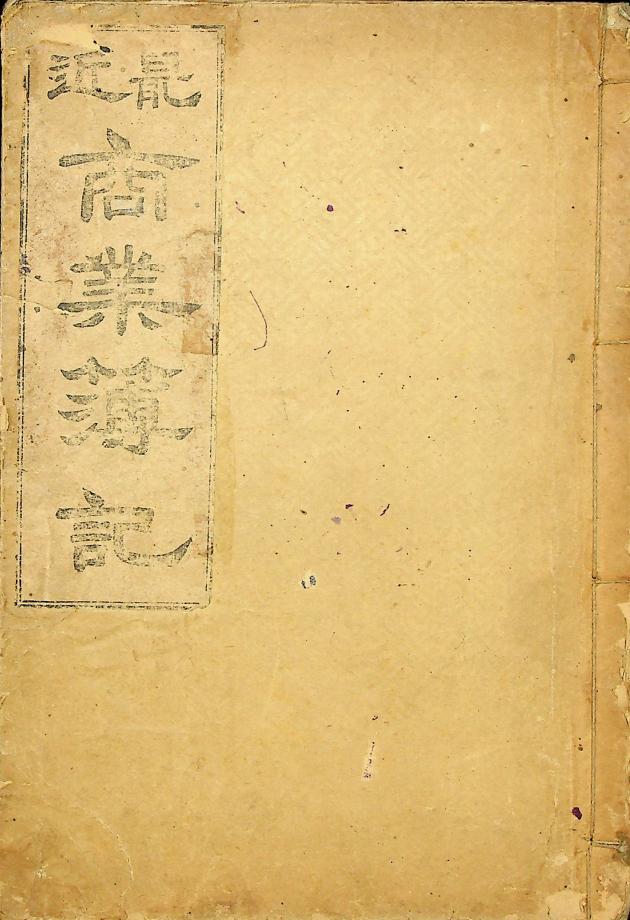 最近
商業簿記